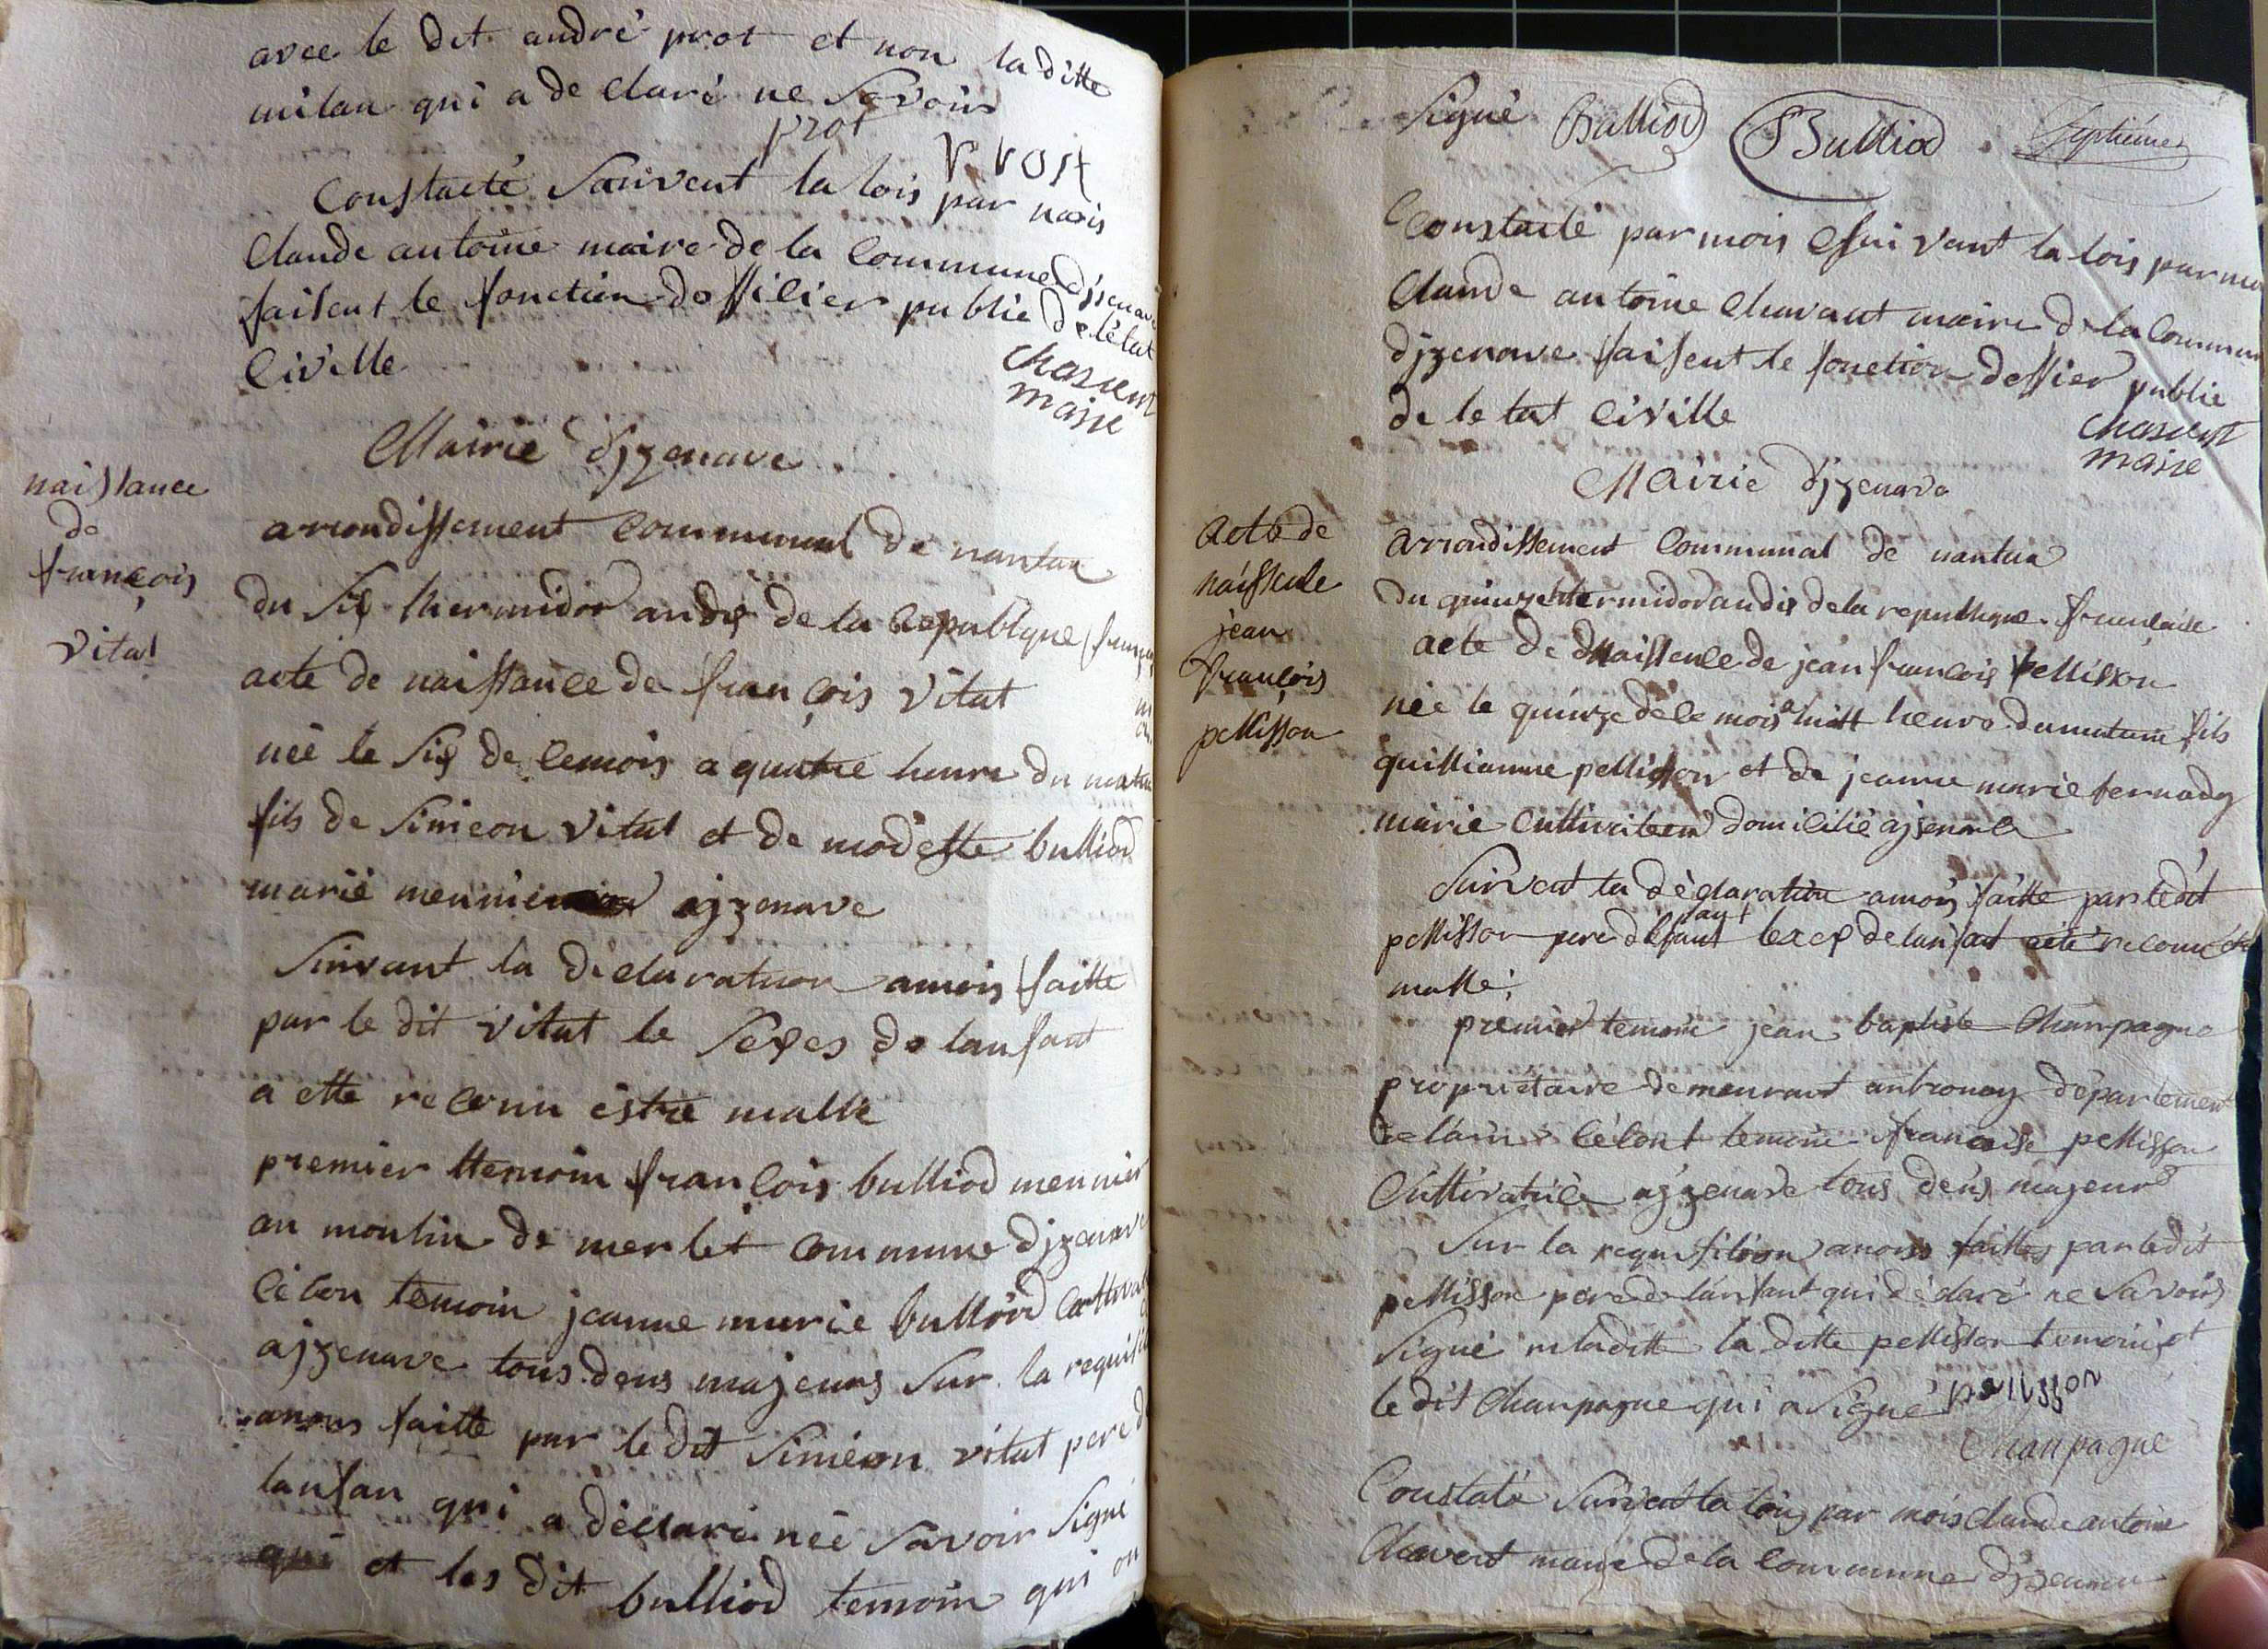 avec le dit andré prot et non la ditte
milan qui a de claré ne Savoir
prot
p vost
Constacté Sauvent la lois par mois
Claude antoine maire de la Commune djzenave
faisent le fonction dofficier publie de létat
Civille
chavent
maire
Mairie djzenave
naissance
de
françois
vital
arrondissement Communal de nantua
du Six thermidor an dix de la republque
acte de naissance de françois Vital
néé le Six de cemois a quatre heure du matin
fils de Simeon Vital et de modeste bulliod
marié meunier ajzenave
Suivant la déclaration amois faitte
par le dit vital le Sexes de lanfant
a ette reconu éstre malle
premier ttemoin françois bulliod meunier
au moulin de merlet commune djzenave
cécon temoin jeanne marie bulliod
ajzenave tous deus majeurs Sur la requisi
anous faitte par le dit Siméon vital pere d
lanfan qui a déclaré néé Savoir Signé
qui et les dit bulliod temoin qui on
Signé Balliod Bulliod Septieme
Constacté par mois Suivant la lois par mo
Claude antoine Chavant maire de la Commun
djzenave faisent le fonction deffier publie
de le tat Civille
chavent
maire
Mairie djzenave
Acte de
naissence
jean
françois
pellisson
Arrondissement Communal de nantua
Du quinze thermidor an dix de la republique francaise
acte de naissence de jean françois pellisson
néé le quinze dece mois a huitt heure du matin fils
quilliaume pellisson et de jeanne marie
marié Cultivateur domicilié ajzenave
Suivent la déclaration amois faitte par le dit
pellisson pere delanfant le sexes delanfant aété reconu
malle
premier temoin jean baptiste Champagne
propriétaire demeurant anbronay département
De lain cécont temoin francoise pellisson
Cultivatrice ajzenave tous déus majeurs
Sur la requisition anous faittes par le dit
pellisson pere de lanfant qui déclaré ne Savoir
Signé ni la ditte la ditte pellisson temoin et
le dit Champagne qui a Signé pelisson
Champagne
Constaté Suivent la lois par mois Claude antoine
Chavent maire de la Commune djzenave